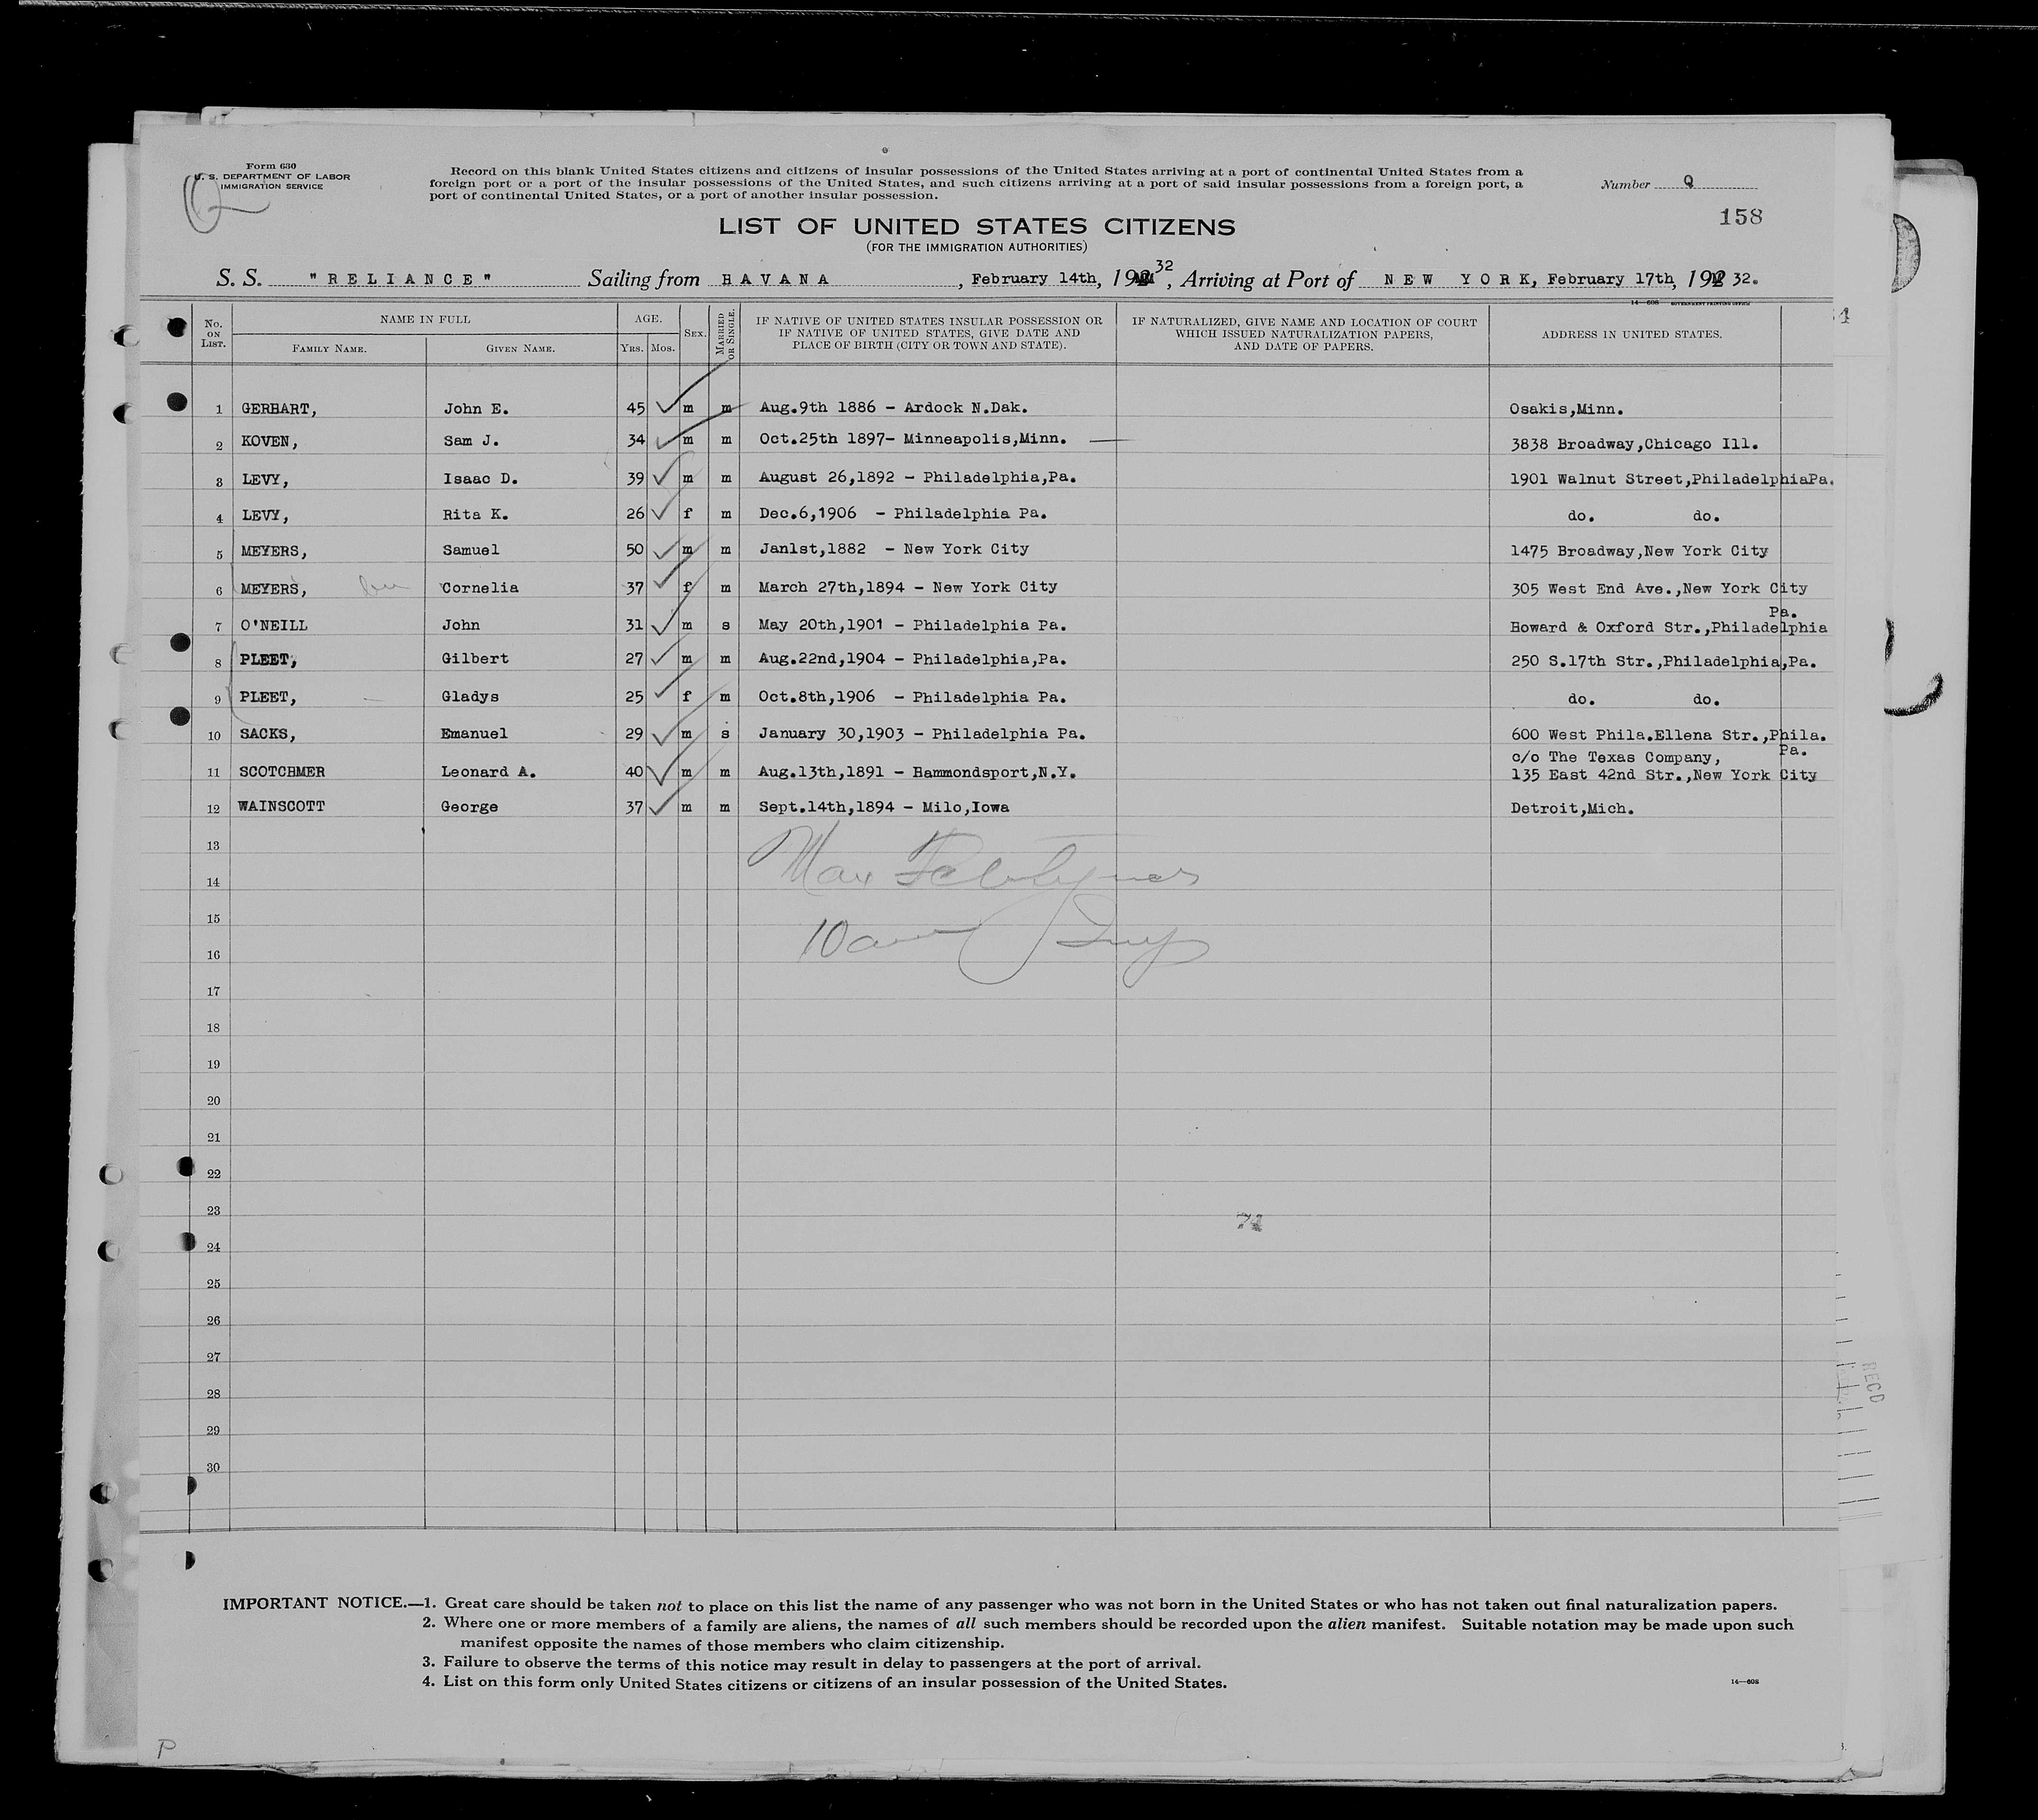 Form 630
U. S. DEPARTMENT OF LABOR
IMMIGRATION SERVICE
Record on this blank United States citizens and citizens of insular possessions of the United States arriving at a port of continental United States from a
foreign port or a port of the insular possessions of the United States, and such citizens arriving at a port of said insular possessions from a foreign port, a
port of continental United States, or a port of another insular possession.
Number Q
158
LIST OF UNITED STATES CITIZENS
(FOR THE IMMIGRATION AUTHORITIES)
S. S. "RELIANCE" Sailing from HAVANA, February 14th, 192 32, Arriving at Port of NEW YORK, February 17th, 192 32.
No. ON LIST. NAME IN FULL FAMILY NAME. GIVEN NAME. AGE. YRS. MOS. SEX. MARRIED OR SINGLE. IF NATIVE OF UNITED STATES INSULAR POSSESSION OR IF NATIVE OF UNITED STATES, GIVE DATE AND PLACE OF BIRTH (CITY OR TOWN AND STATE). IF NATURALIZED, GIVE NAME AND LOCATION OF COURT WHICH ISSUED NATURALIZATION PAPERS, AND DATE OF PAPERS. ADDRESS IN UNITED STATES.
1 GERHART, John E. 45 m m Aug.9th 1886 - Ardock N.Dak. Osakis,Minn.
2 KOVEN, Sam J. 34 m m Oct.25th 1897- Minneapolis,Minn. 3838 Broadway,Chicago Ill.
3 LEVY, Isaac D. 39 m m August 26,1892 - Philadelphia,Pa. 1901 Walnut Street,PhiladelphiaPa.
4 LEVY, Rita K. 26 f m Dec.6,1906 - Philadelphia Pa. do. do.
5 MEYERS, Samuel 50 m m Jan1st,1882 - New York City 1475 Broadway,New York City
6 MEYERS, Cornelia 37 f m March 27th,1894 - New York City 305 West End Ave.,New York City
7 O'NEILL John 31 m s May 20th,1901 - Philadelphia Pa. Howard & Oxford Str.,Philadelphia Pa.
8 PLEET, Gilbert 27 m m Aug.22nd,1904 - Philadelphia,Pa. 250 S.17th Str.,Philadelphia,Pa.
9 PLEET, Gladys 25 f m Oct.8th,1906 - Philadelphia Pa. do. do.
10 SACKS, Emanuel 29 m s January 30,1903 - Philadelphia Pa. 600 West Phila.Ellena Str.,Phila. Pa.
11 SCOTCHMER Leonard A. 40 m m Aug.13th,1891 - Hammondsport,N.Y. c/o The Texas Company, 135 East 42nd Str.,New York City
12 WAINSCOTT George 37 m m Sept.14th,1894 - Milo,Iowa Detroit,Mich.
13
Max
14
15
10
16
17
18
19
20
21
22
23
74
24
25
26
27
28
29
30
RECD
IMPORTANT NOTICE.—1. Great care should be taken not to place on this list the name of any passenger who was not born in the United States or who has not taken out final naturalization papers.
2. Where one or more members of a family are aliens, the names of all such members should be recorded upon the alien manifest. Suitable notation may be made upon such
manifest opposite the names of those members who claim citizenship.
3. Failure to observe the terms of this notice may result in delay to passengers at the port of arrival.
4. List on this form only United States citizens or citizens of an insular possession of the United States.
14—608
P